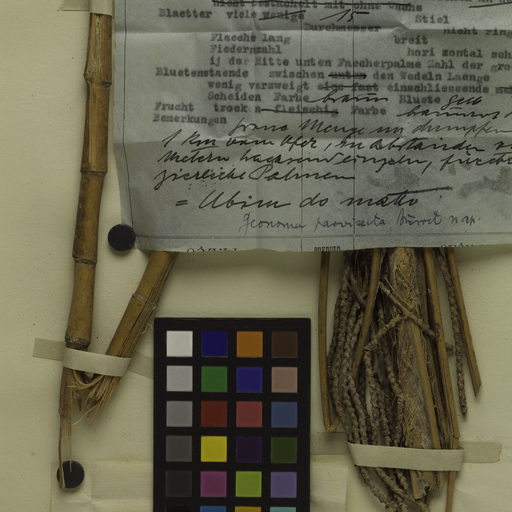 nicht bestachelt mit ohne wachs
Blaetter viele wenige 15 Stiel
Durchmesser nicht ring
Flaeche lang breit
Fiederzahl hori zontal sch
ij der Mitte unten Faecherpalme Zahl der gro
Bluetenstaende zwischen unten den Wedeln Laenge
wenig verzweigt eine fast einschliessende
Scheiden Farbe braun Bluete gelb
Frucht trock n fleischig Farbe braunrot
Bemerkungen
1 km vom Ufer, in Abständen
Metern wachsend einzeln,
zierliche Palmen
= Ubim do matto
Geonoma parvisecta Burret n. sp.